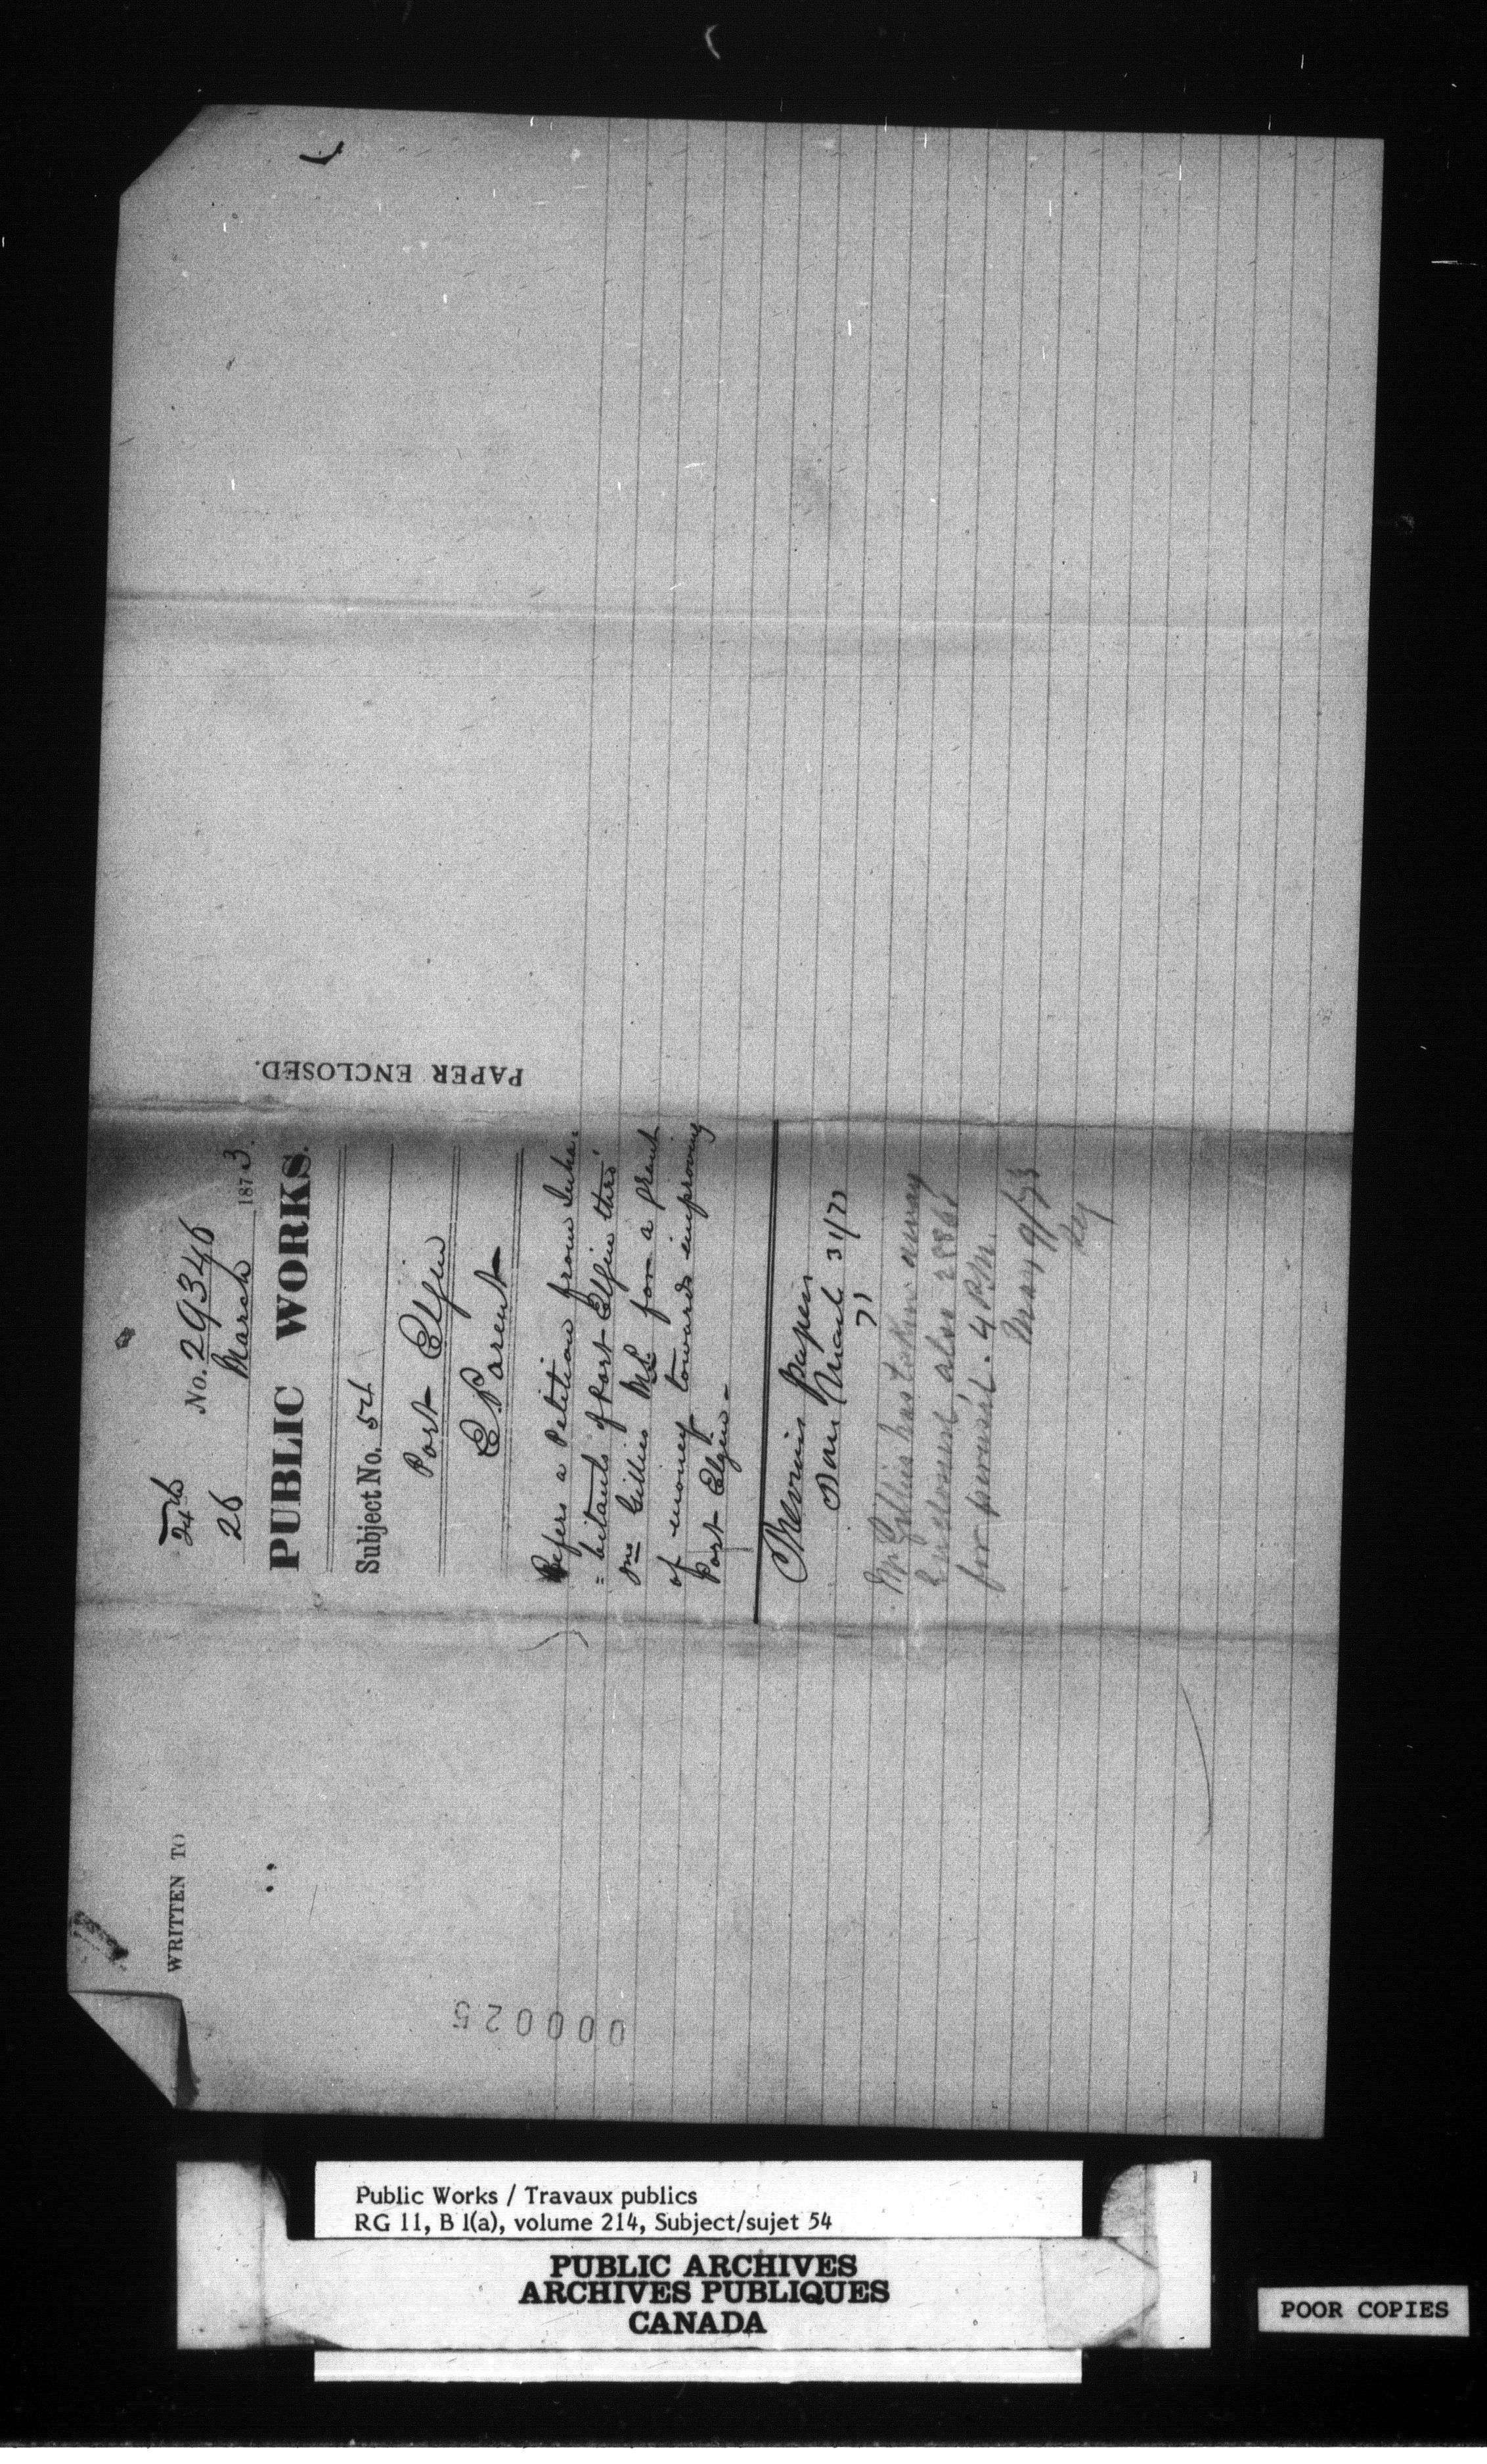 WRITTEN TO
24th
No. 29346
26 March 1873.
PUBLIC WORKS.
Subject No. 54
Port Elgin
E. Parent
Refers a Petition from Inha-
=bitants of Port Elgin thro'
Mr Gillies MP for a grant
of money towards improving
Port Elgin -
Previous papers
March 31/73
Mr Gillies has taken away
enclosure, also 28868
for perusal. 4 P.M.
May 9/73
PAPER ENCLOSED.
000025
Public Works / Travaux publics
RG 11, B 1(a), volume 214, Subject/sujet 54
PUBLIC ARCHIVES
ARCHIVES PUBLIQUES
CANADA
POOR COPIES